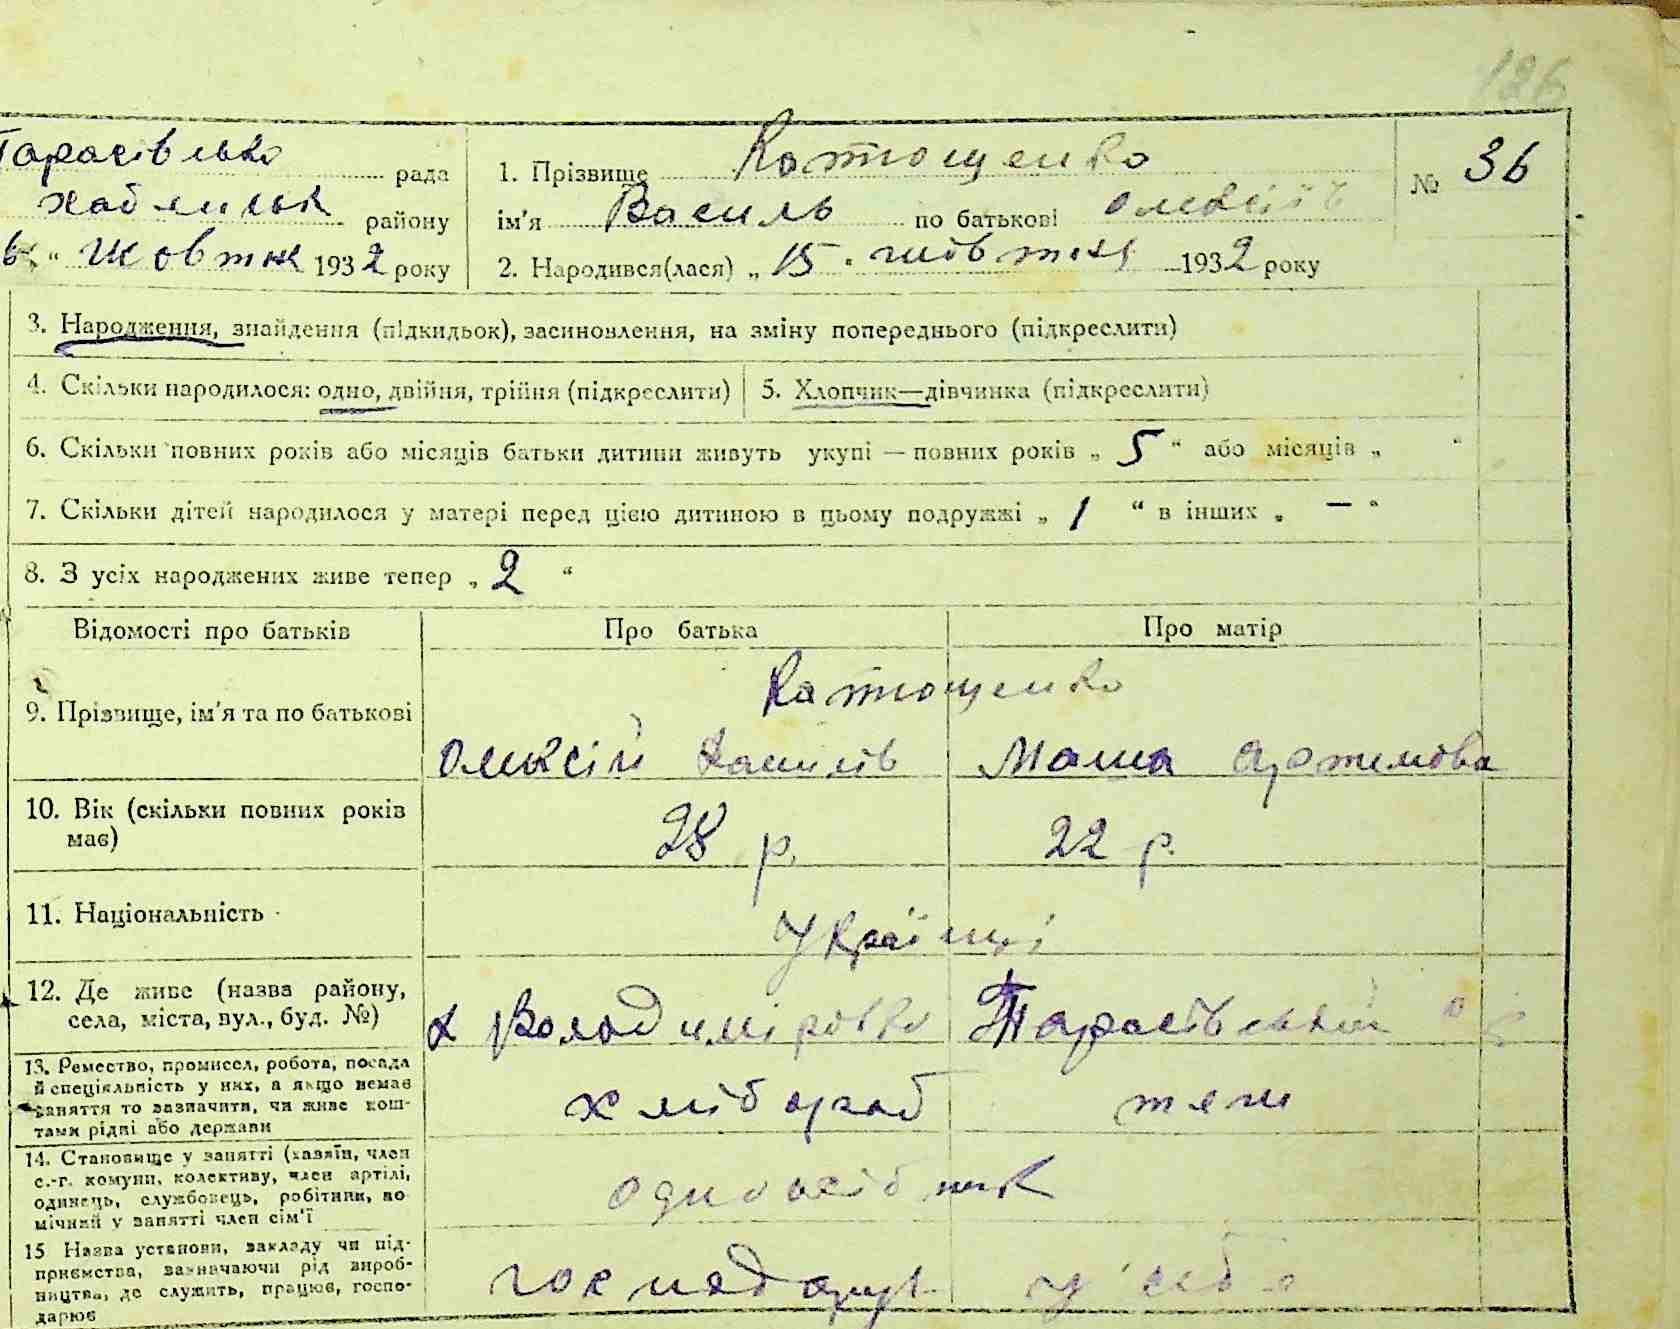 126
Тарасівсько рада
1. Прізвище Катющенко
№ 36
хаблиськ району
ім'я Василь по батькові Олексіїв
6 " Жовтня 1932 року
2. Народився(лася) „ 15 " жовтня 1932 року
3. Народження, знайдення (підкидьок), засиновлення, на зміну попереднього (підкреслити)
4. Скільки народилося: одно, двійня, трійня (підкреслити)
5. Хлопчик—дівчинка (підкреслити)
6. Скільки повних років або місяців батьки дитини живуть укупі — повних років „ 5 “ або місяців „ “
7. Скільки дітей народилося у матері перед цією дитиною в цьому подружжі „ 1 “ в інших „ — “
8. З усіх народжених живе тепер „ 2 “
Відомості про батьків
Про батька
Про матір
9. Прізвище, ім'я та по батькові
Катющенко
Олексій Василів
Маша Артемова
10. Вік (скільки повних років
має)
28 р.
22 р.
11. Національність
Українці
12. Де живе (назва району,
села, міста, вул., буд. №)
х Володиміровка
Тарасівської
13. Ремество, промисел, робота, посада
й спеціяльність у них, а якщо немає
заняття то зазначити, чи живе кош-
тами рідні або держави
хлібороб
теж
14. Становище у занятті (хазяїн, член
с.-г. комуни, колективу, член артілі,
одинець, службовець, робітник, по-
мічний у занятті член сім'ї
одноосібник
15 Назва установи, закладу чи під-
приємства, зазначаючи рід вироб-
ництва, де служить, працює, госпо-
дарює
господарує
у себе